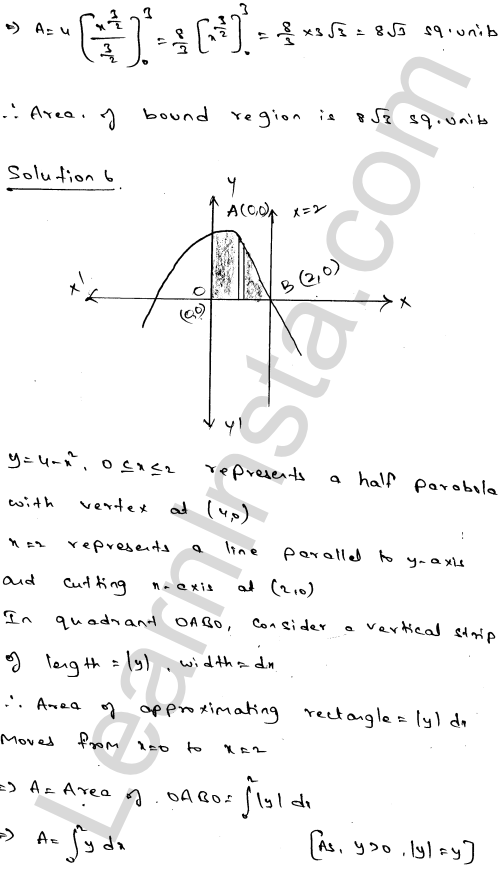 ⇒) A = 4 [x^(3/2) / (3/2)]₀³ = 8/3 [x^(3/2)]₀³ = 8/3 × 3√3 = 8√3 sq. units
∴ Area of bound region is 8√3 sq. units
Solution 6.
Y
A(0,0) x=2
X' O B (2,0) X
(0,0)
Y'
y = 4-x², 0 ≤ x ≤ 2 represents a half parabola
with vertex at (4,0)
x=2 represents a line parallel to y-axis
and cutting x-axis at (2,0)
In quadrant OABO, consider a vertical strip
of length = |y|, width = dx
∴ Area of approximating rectangle = |y| dx
Moves from x=0 to x=2
=) A = Area of OABO = ∫₀² |y| dx
=) A = ∫₀² y dx [As, y>0, |y|=y]
LearnInsta.com